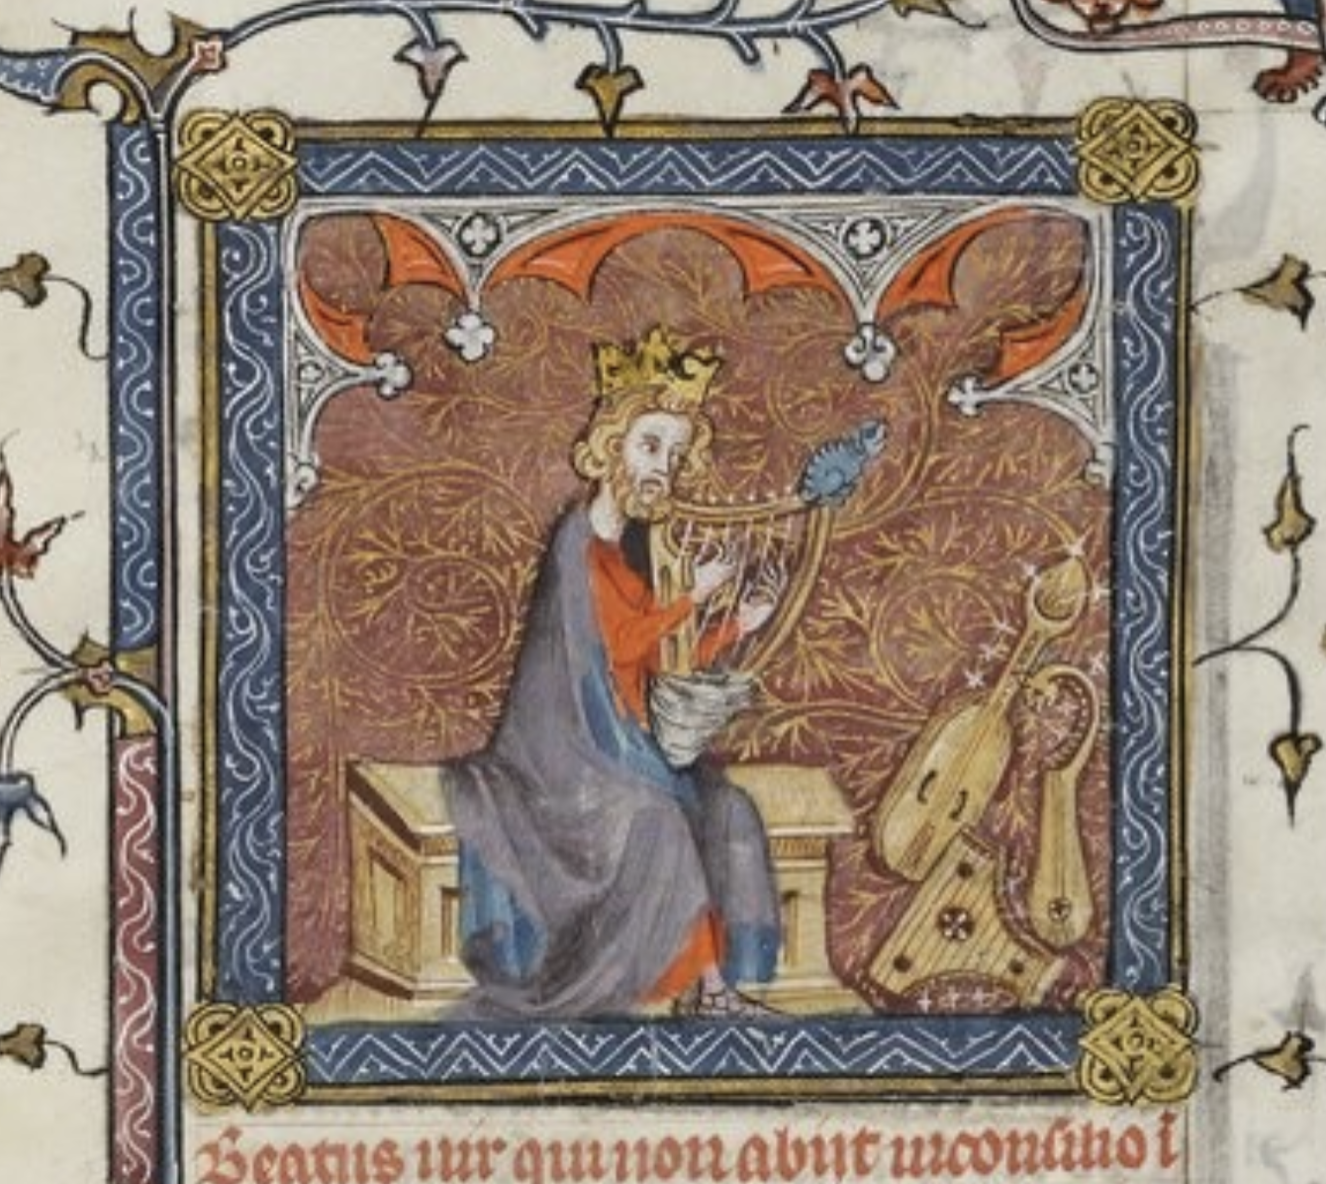 Beatus uir qui non abiit in consilio i